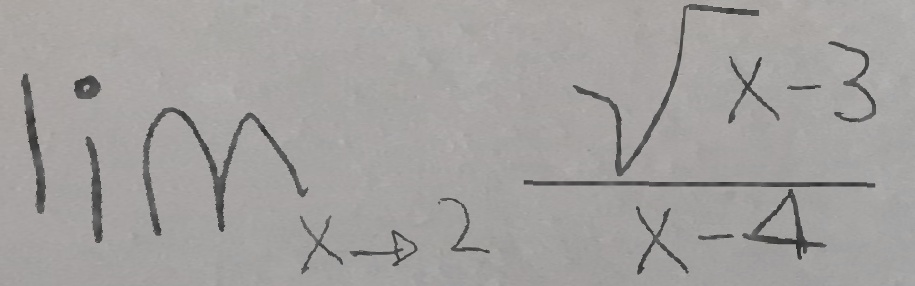 lim x→2 √x-3 / x-4